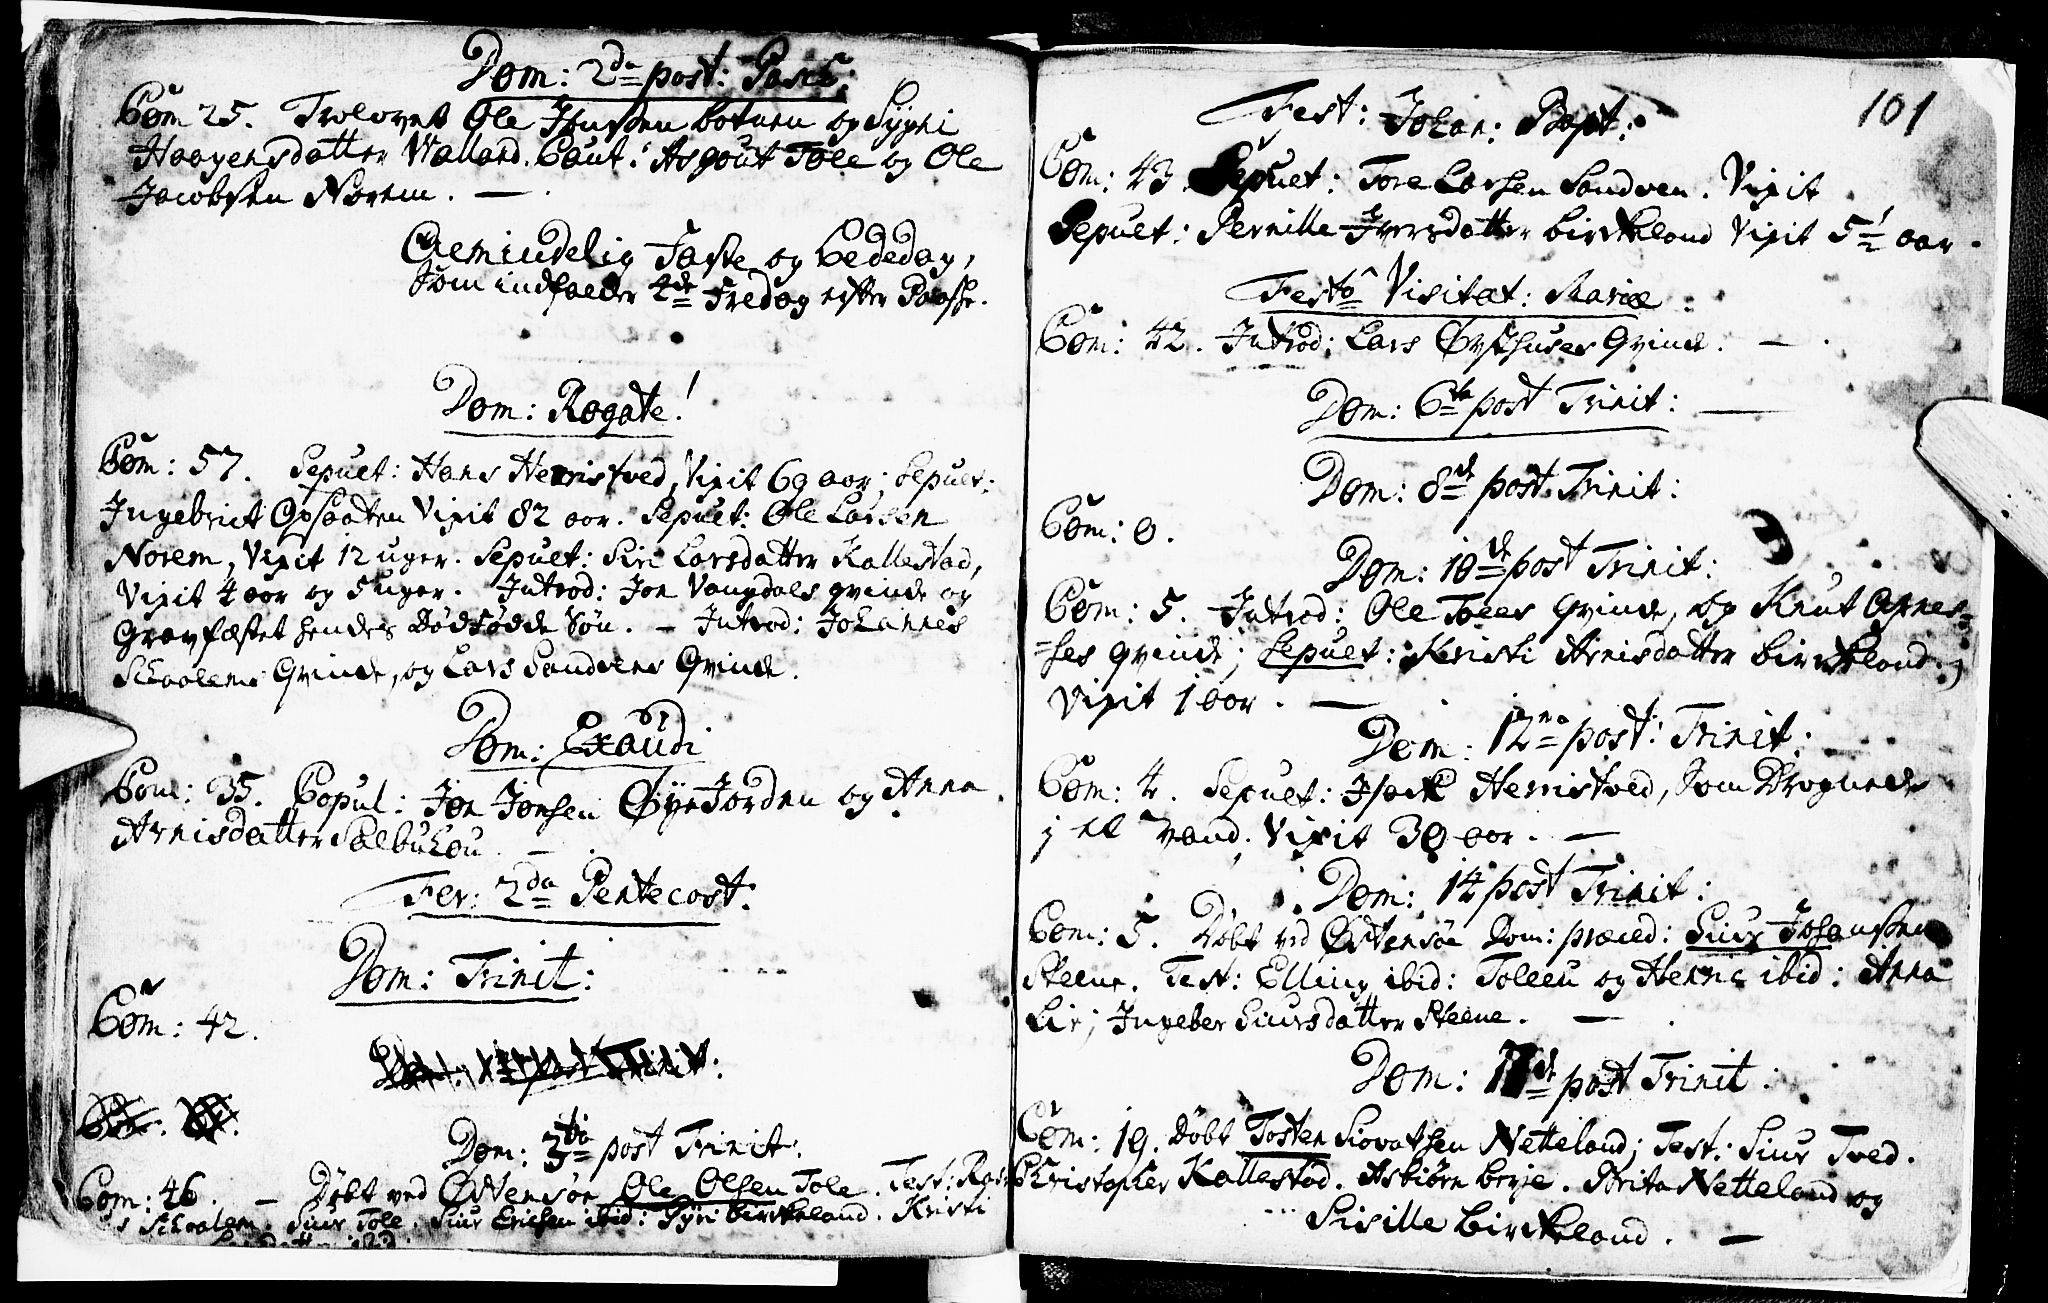 Dom: 2da post: Pasch:
Com 25. Trolovet Ole Jensen botnen og Sygni
Haagensdatter Walland. Caut: Asgout Tole og Ole
Jacobsen Norem. —
Almindelig Faste og Bededag,
som indfalder 4de Fredag efter Paaske.
Dom: Rogate!
Com: 57. Sepult: Hans Herristved, Vixit 69 aar; Sepult:
Ingebrict Vixit 82 aar. Sepult: Ole Larsen
Norem, Vixit 12 uger. Sepult: Siri Larsdatter Kallestad,
Vixit 4 aar og 5 uger. Introd: Jon Vangdals qvinde og
Gravfæstet hendes Dødfødde Søn. — Introd: Johannes
Schaalens Qvinde, og Lars Sandvens Qvinde.
Dom: Exaudi
Com: 35. Copul: Jon Jonsen Øyefjorden og Anna
Arnisdatter Salbuhou. —
Fer: 2da Pentecost:
Dom: Trinit:
Com: 42.
Dom: 3tia post Trinit:
Com: 46. — Døbt ved Østensøe Ole Olsen Tole. Test:
Schaalen. Siur Tole. Siur Erichsen ibid: Gyri birkeland. Kristi
101
Fest: Johan: Bapt:
Com: 43. Sepult: Tore Larsen Sandven. Vixit
Sepult: Pernille Iversdatter birkeland Vixit 5 1/2 aar.
Festo Visitat: Mariæ
Com: 42. Introd: Lars Øysthuses Qvinde. —
Dom: 6ta post Trinit: —
Dom: 8de post Trinit:
Com: 0.
Dom: 10de post Trinit:
Com: 5. Introd: Ole Toles Qvinde, og Knut Agnes=
=ses qvinde; Sepult: Kristi Arnisdatter birkeland,
Vixit 1 aar. —
Dom: 12ma post: Trinit:
Com: 4. Sepult: Isack Herristved, som Drognede
j et vand. Vixit 39 aar. —
Dom: 14 post Trinit:
Com: 5. Døbt ved Østensøe Dom: præced: Siur Johansen
Steene. Test: Elling ibid: Tolleu og Henne ibid: Anna
Lie; Ingeber Siursdatter Steene. —
Dom: 17de post Trinit:
Com: 19. Døbt Tosten Siovatsen Netteland; Test: Siur Tved.
Christopher Kallestad. Asbiørn berje. Brita Netteland og
Sisille birkeland. —